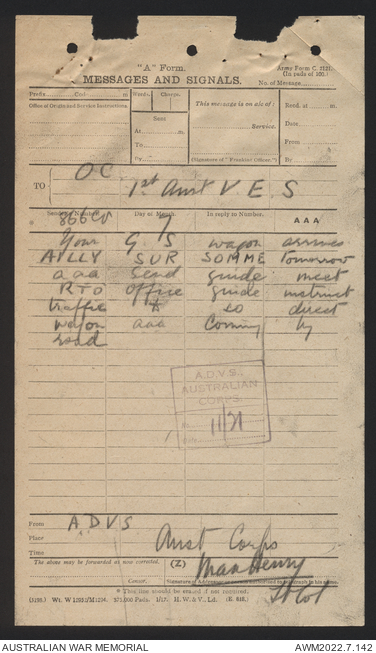 "A" Form.
Army Form C. 2121.
(In pads of 100.)
MESSAGES AND SIGNALS.
No. of Message
Prefix Code m
Words. Charge.
This message is on a/c of:
Recd. at m.
Office of Origin and Service Instructions.
Sent
Date
At m.
Service.
From
To
By
(Signature of "Franking Officer.")
By
TO
OC
1st Aust V E S
Sender's Number. Day of Month. In reply to Number. AAA
1
Your G S wagon arrives
AILLY SUR SOMME tomorrow
aaa send guide meet
RTO office guide instruct
traffic to direct
wagon aaa Coming by
road
A.D.V.S.,
AUSTRALIAN
CORPS.
No.
11/21
Date
From ADVS
Place Aust Corps
Time
The above may be forwarded as now corrected. (Z)
Max Henry
Censor.
Lt Col
* This line should be erased if not required.
AUSTRALIAN WAR MEMORIAL
AWM2022.7.142